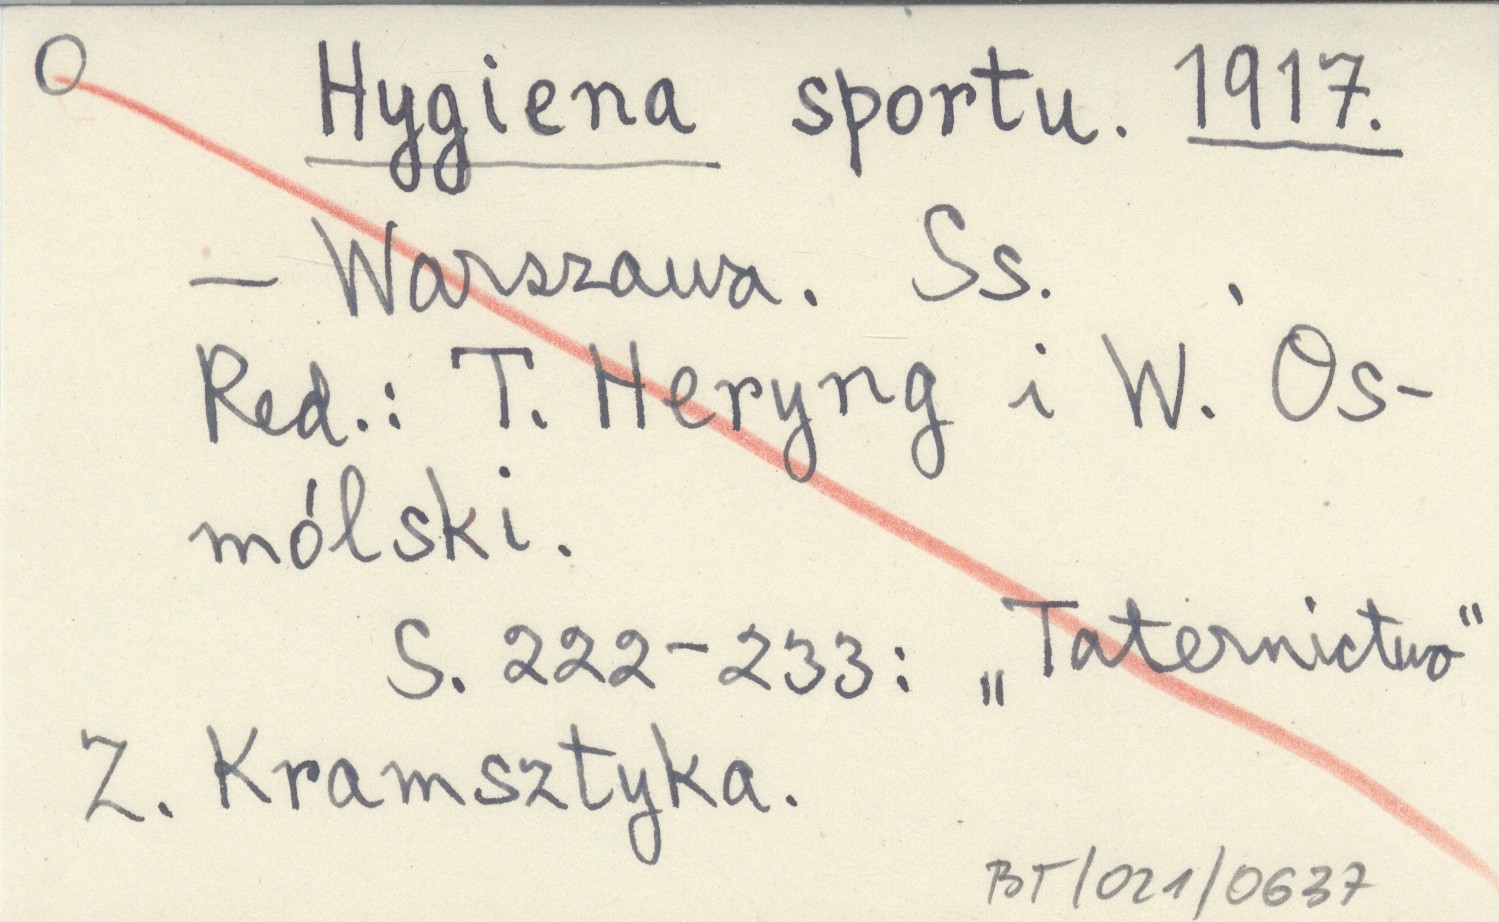 O Hygiena sportu. 1917.
— Warszawa. Ss.
Red.: T. Heryng i W. Os-
mólski.
S. 222-233: „Taternictwo"
Z. Kramsztyka.
BT/021/0637